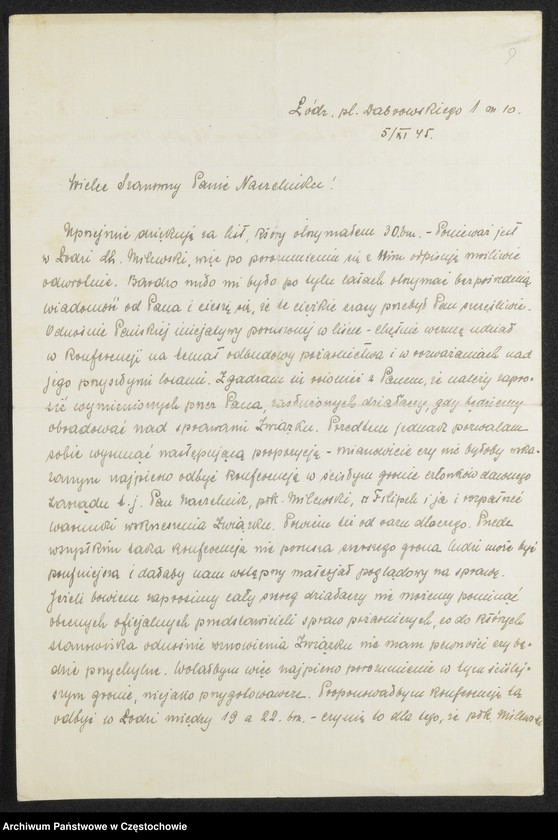 9
Łódź, pl. Dąbrowskiego 1 m 10.
5/XI 45.
Wielce Szanowny Panie Naczelniku!
Uprzejmie dziękuję za list, który otrzymałem 30.bm. - Ponieważ jest
w Łodzi dh. Milewski, więc po porozumieniu się z Nim odpisuję możliwie
odwrotnie. Bardzo miło mi było po tylu latach otrzymać bezpośrednią
wiadomość od Pana i cieszę się, że te ciężkie czasy przebył Pan szczęśliwie.
Odnośnie Pańskiej inicjatywy poruszonej w liście - chętnie wezmę udział
w Konferencji na temat odbudowy pożarnictwa i w rozważaniach nad
jego przyszłymi losami. Zgadzam się również z Panem, że należy zapro-
sić wymienionych przez Pana, zasłużonych działaczy, gdy będziemy
obradować nad sprawami Związku. Przedtem jednak pozwalam
sobie wysunąć następującą propozycję - mianowicie czy nie byłoby wska-
zanym najpierw odbyć konferencję w ścisłym gronie członków dawnego
Zarządu t.j. Pan Naczelnik, płk. Milewski, Filipek i ja i rozpatrzeć
warunki wskrzeszenia Związku. Powiem też od razu dlaczego. Przede
wszystkim taka konferencja nie porusza szerszego grona ludzi może być
poufniejsza i dałaby nam wstępny materjał poglądowy na sprawę.
Jeżeli bowiem zaprosimy cały szereg działaczy nie możemy pominąć
obecnych oficjalnych przedstawicieli spraw pożarniczych, co do których
stanowiska odnośnie wznowienia Związku nie mam pewności czy bę-
dzie przychylne. Wolałbym więc najpierw porozumienie w tym ściślej-
szym gronie, niejako przygotowawcze. Proponowałbym konferencję tą
odbyć w Łodzi między 19 a 22. bm. - czynię to dla tego, że płk. Milewski
Archiwum Państwowe w Częstochowie